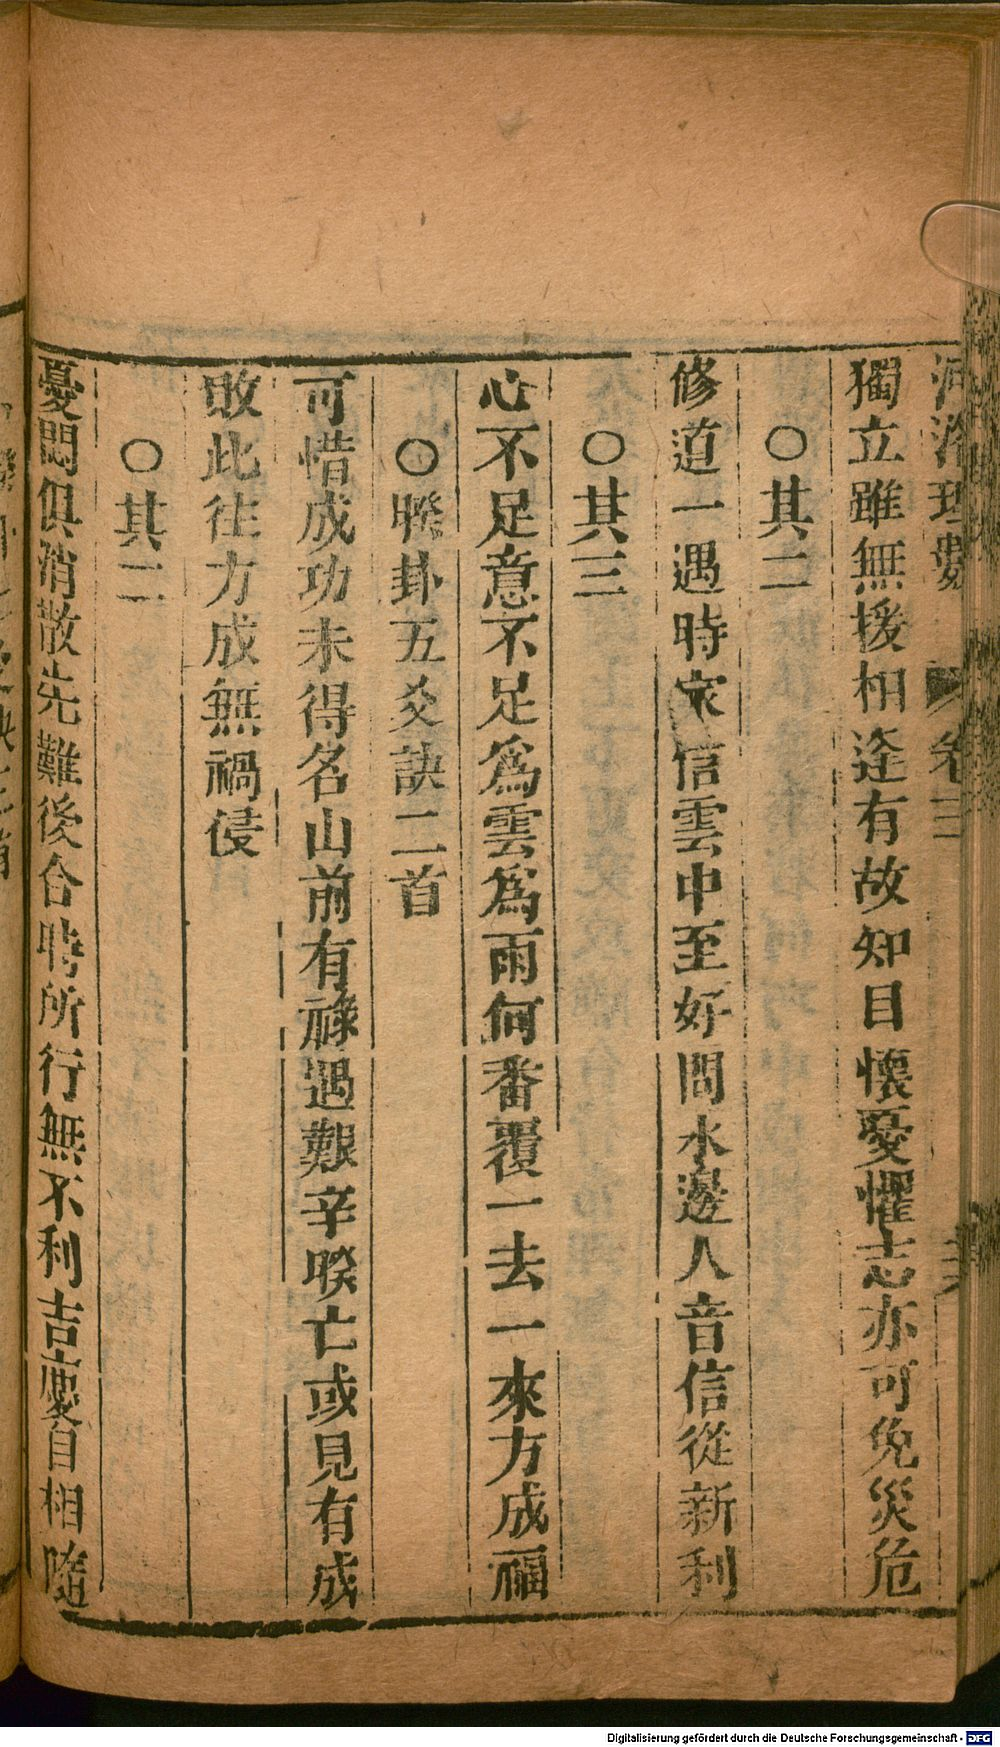 河洛理數 卷三
獨立雖無援相逢有故知目懷憂懼志亦可免災危
○其二
修道一遇時來信雲中至好問水邊人音信從新利
○其三
心不足意不足爲雲爲雨何番覆一去一來方成福
○睽卦五爻訣二首
可惜成功未得名山前有祿遇艱辛睽亡或見有成
敗此往方成無禍侵
○其二
憂悶俱消散先難後合時所行無不利吉慶自相隨
Digitalisierung gefördert durch die Deutsche Forschungsgemeinschaft - DFG